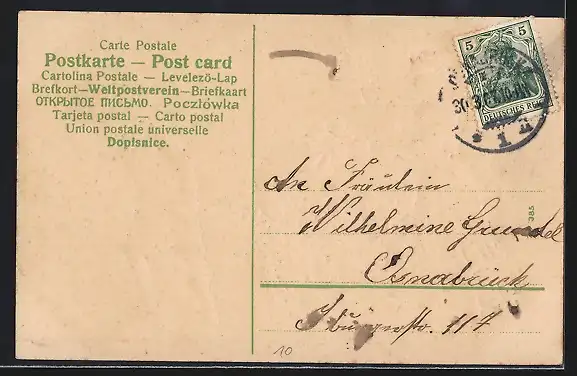 Carte Postale
Postkarte — Post card
Cartolina Postale — Levelező-Lap
Brefkort—Weltpostverein—Briefkaart
ОТКРЫТОЕ ПИСЬМО. Pocżlówka
Tarjeta postal — Carto postal
Union postale universelle
Dopisnice.
5 5
DEUTSCHES REICH
1
An Fräulein
Wilhelmine Grundel
385
Osnabrück
Iburgerstr. 117
10